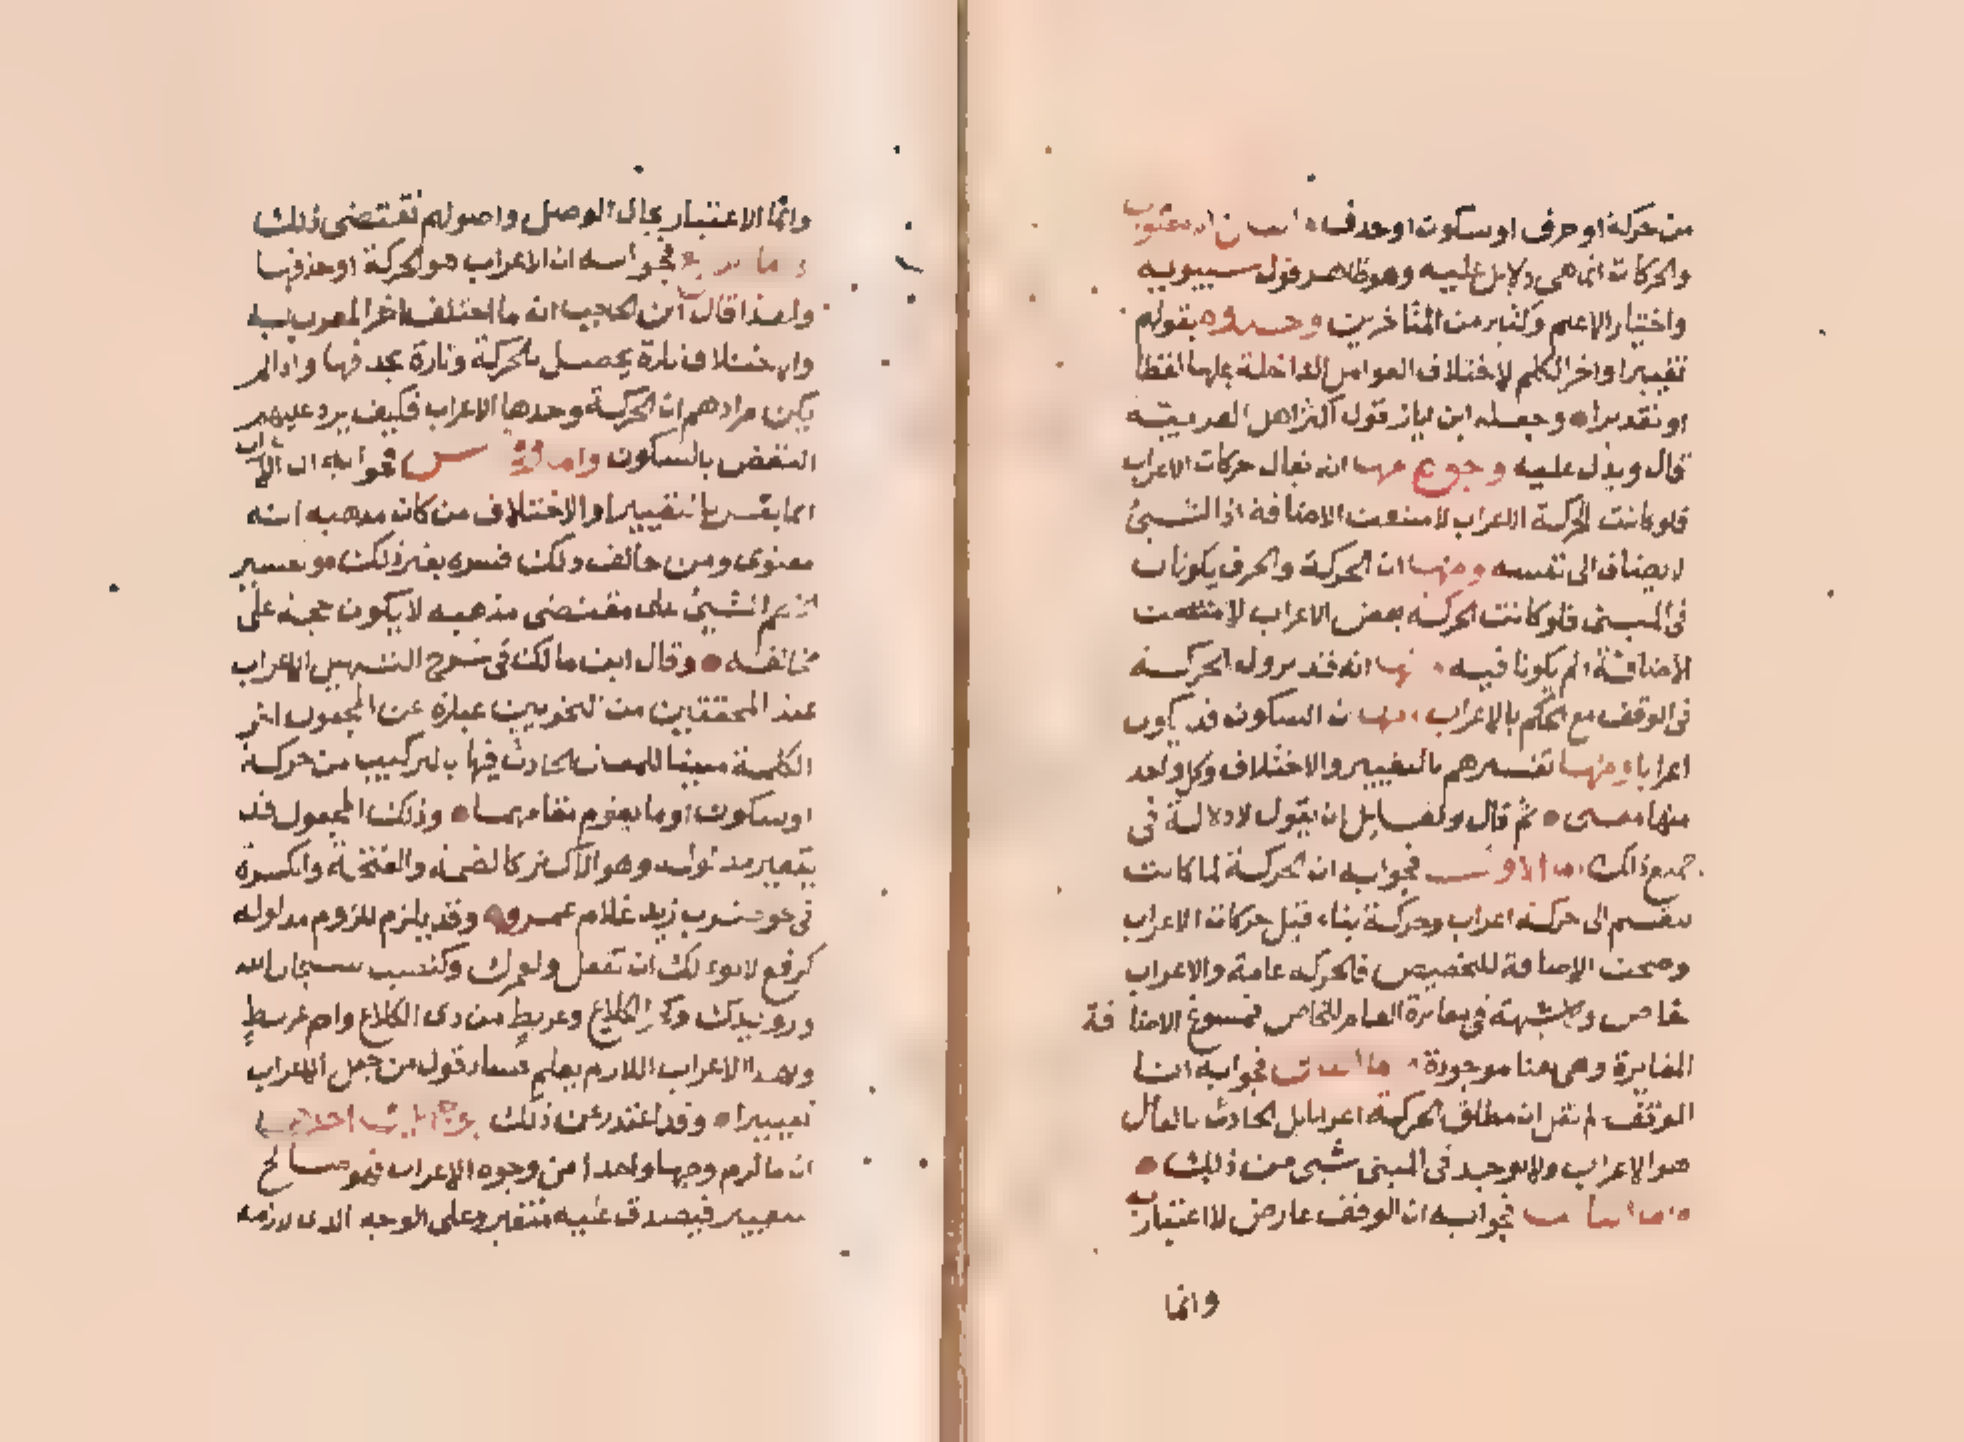 من حركة او حرف او سكون او حذف
والحركات انما هي دلايل عليه وهو ظاهر قول سيبويه
واختيار الاعلم وكثير من المتاخرين وحدوه بقولهم
تغيير اواخر الكلم لاختلاف العوامل الداخلة عليها لفظا
او تقديرا وجعله ابن اياز قول اكثر اهل العربية
قال ويدل عليه وجوه منها انه يقال حركات الاعراب
فلو كانت الحركة الاعراب لامتنعت الاضافة اذ الشيئ
لا يضاف الى نفسه ومنها ان الحركة والحرف يكونان
في المبنى فلو كانت الحركة بعض الاعراب لامتنعت
الاضافة لم يكونا فيه منها انه قد تزول الحركة
في الوقف مع الحكم بالاعراب ومنها ان السكون قد يكون
اعرابا ومنها تفسيرهم بالتغيير والاختلاف وكل واحد
منها معنى ثم قال ولقايل ان يقول لا دلالة في
جميع ذلك اما الاول فجوابه ان الحركة لما كانت
تنقسم الى حركة اعراب وحركة بناء قيل حركات الاعراب
وصحت الاضافة للتخصيص فالحركة عامة والاعراب
خاص ولا شبهة في مغايرة العام للخاص فمسوغ الاضافة
المغايرة وهي هنا موجودة واما الثاني فجوابه اننا
لم نقل ان مطلق الحركة اعرابا بل الحادث بالعامل
هو الاعراب ولا يوجد في المبنى شيى من ذلك
واما الثالث فجوابه ان الوقف عارض لا اعتبار به
وانما
وانما الاعتبار بحال الوصل واصولهم تقتضى ذلك
واما الرابع فجوابه ان الاعراب هو الحركة او حذفها
ولهذا قال ابن الحاجب انه ما اختلف اخر المعرب به
والاختلاف تارة يحصل بالحركة وتارة بحذفها واذا لم
يكن مرادهم ان الحركة وحدها الاعراب فكيف يرد عليهم
النقض بالسكون واما الخامس فجوابه ان الاعراب
انما يفسر بالتغيير او الاختلاف من كان مذهبه انه
معنوى ومن خالف ذلك فسره بغير ذلك
الشيئ على مقتضى مذهبه لا يكون حجة على
مخالفه وقال ابن مالك في شرح التسهيل الاعراب
عند المحققين من النحويين عبارة عن المجعول اخر
الكلمة مبينا للمعنى الحادث فيها بالتركيب من حركة
او سكون او ما يقوم مقامهما وذلك المجعول قد
يتغير مدلوله وهو الاكثر كالضمة والفتحة والكسرة
في نحو ضرب زيد غلام عمرو وقد يلزم للزوم مدلوله
كرفع لا نولك ان تفعل ولعمرك وكنصب سبحان الله
ورويدك وكجر الكلاع وعريط من ذى الكلاع وام عريط
وبهذا الاعراب اللازم يعلم فساد قول من جعل الاعراب
تغييرا وقد اعتذر عن ذلك بوجهين احدهما
ان ما لزم وجها واحدا من وجوه الاعراب فهو صالح
للتغيير فيصدق عليه متغير وعلى الوجه الذى لازمه